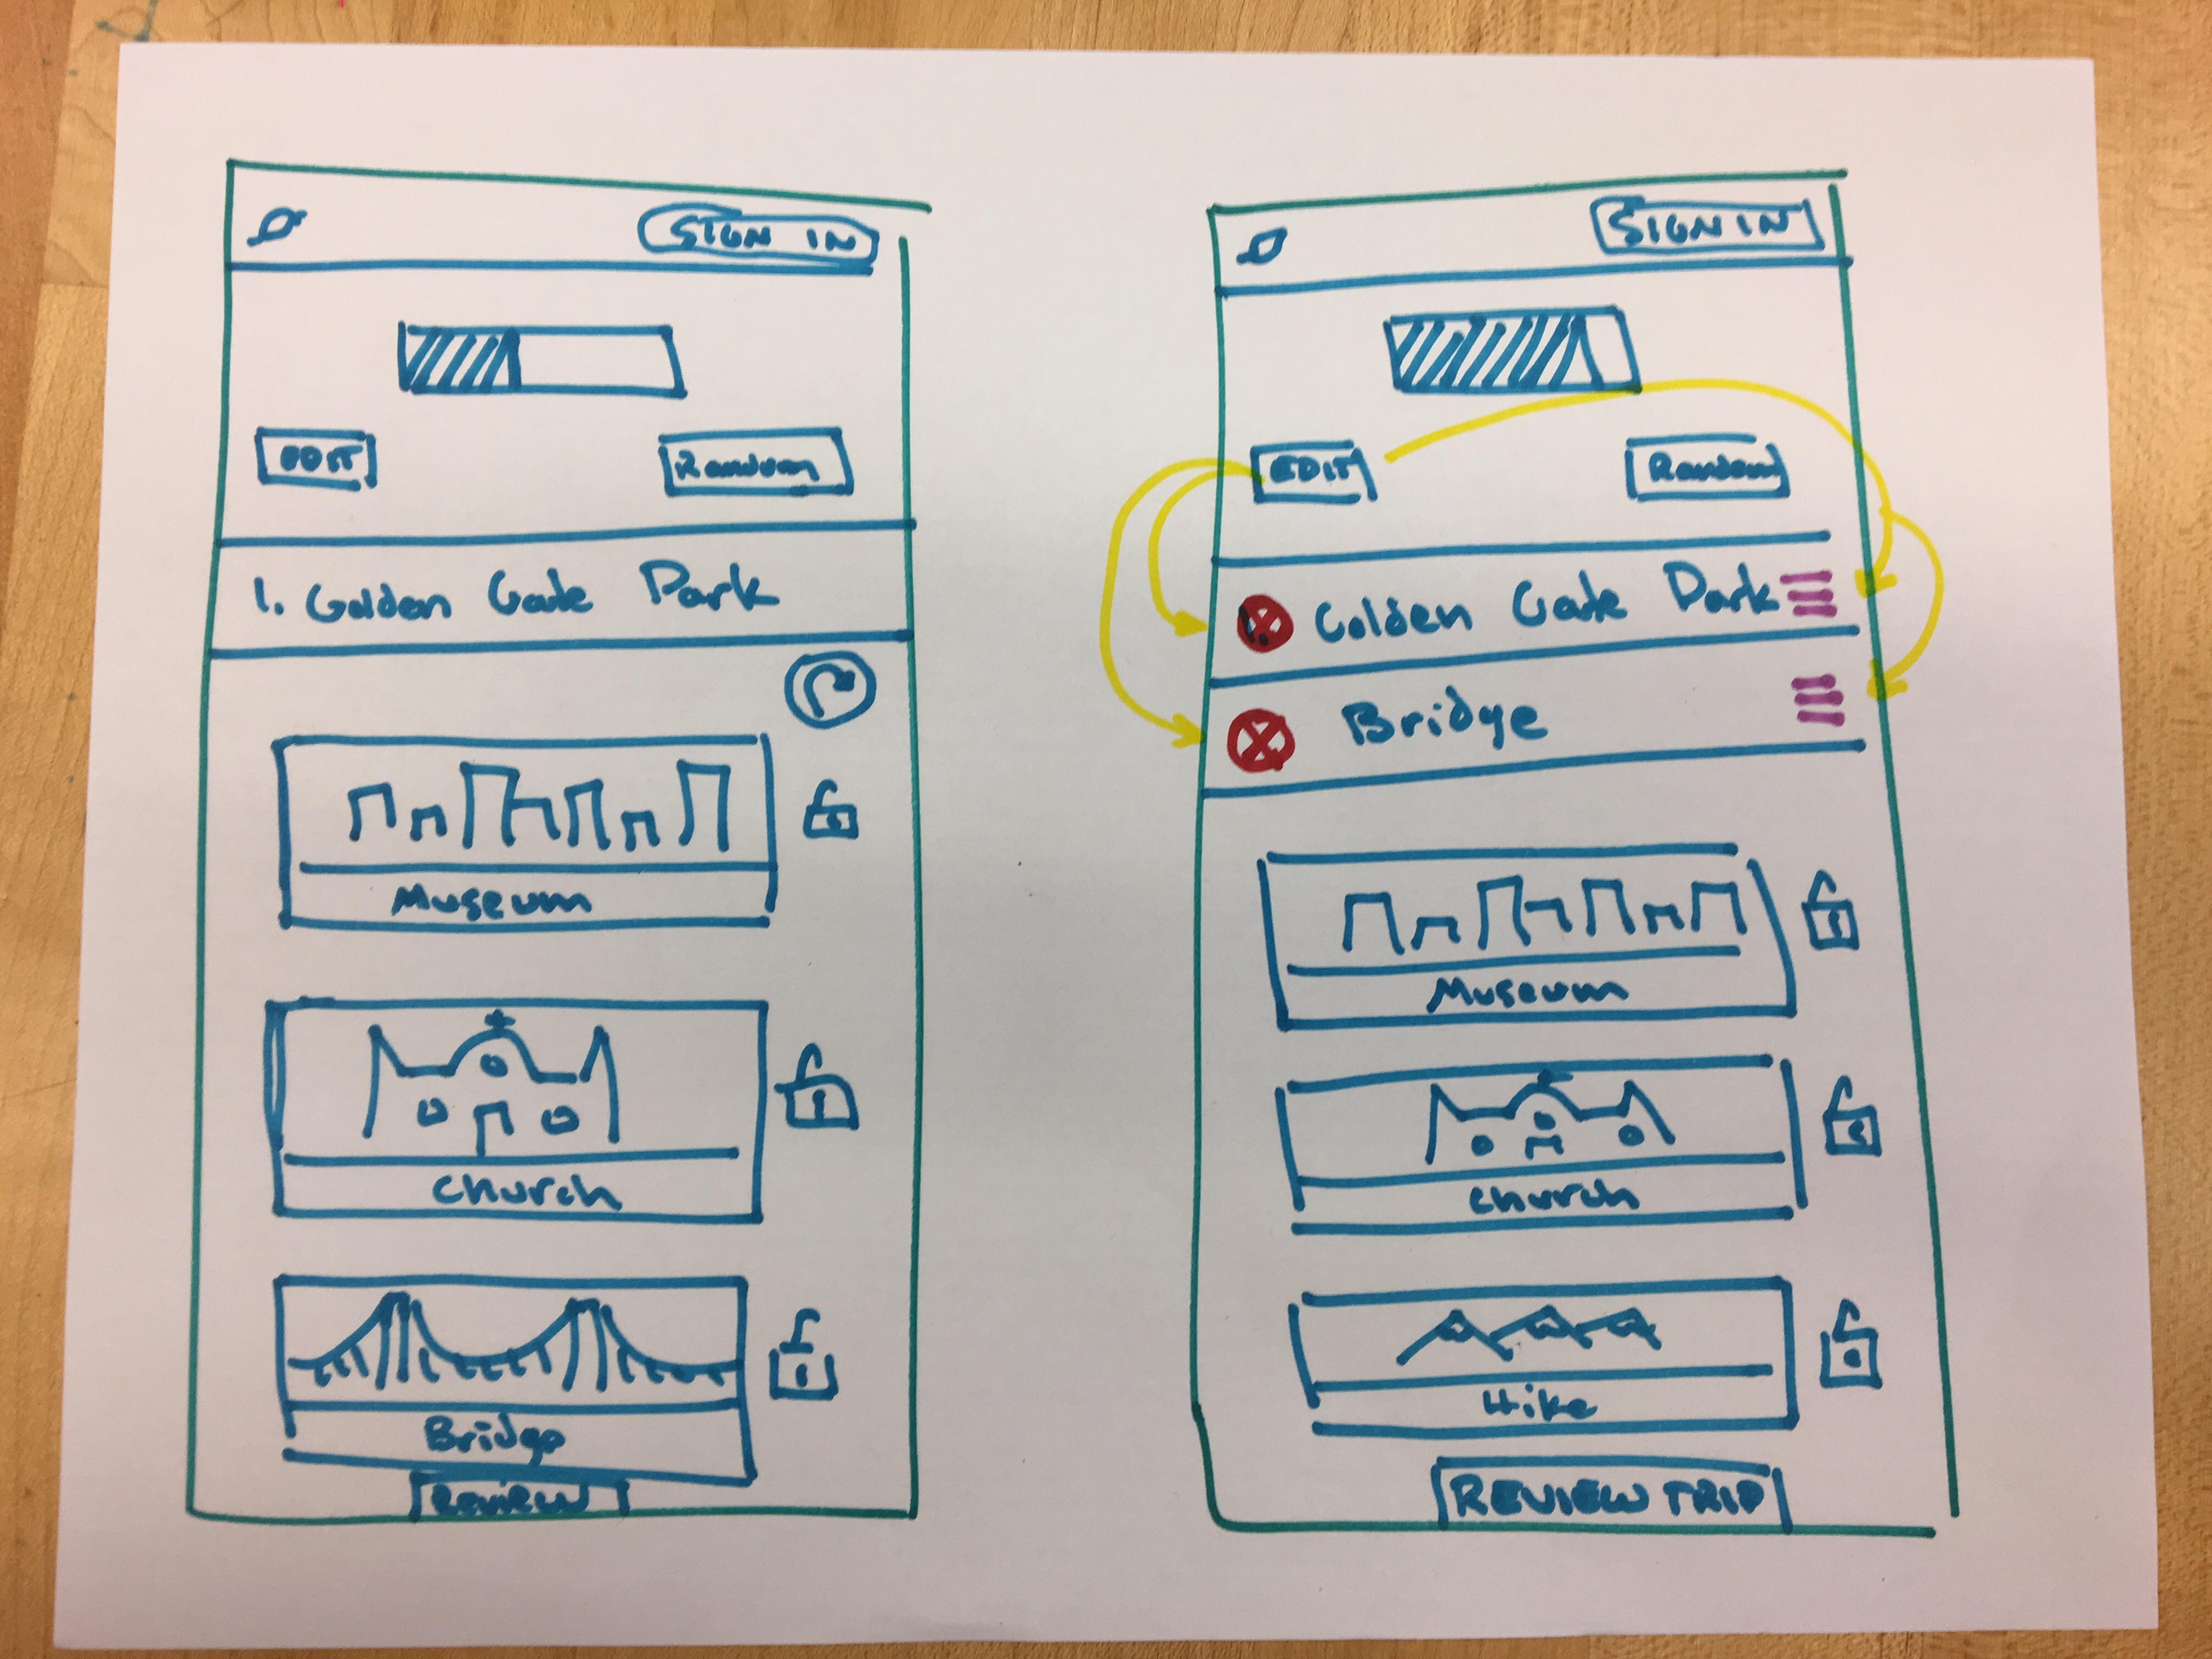 SIGN IN
EDIT
Random
1. Golden Gate Park
Museum
Church
Bridge
REVIEW
SIGN IN
EDIT
Random
1. Golden Gate Park
Bridge
Museum
Church
Hike
REVIEW TRIP